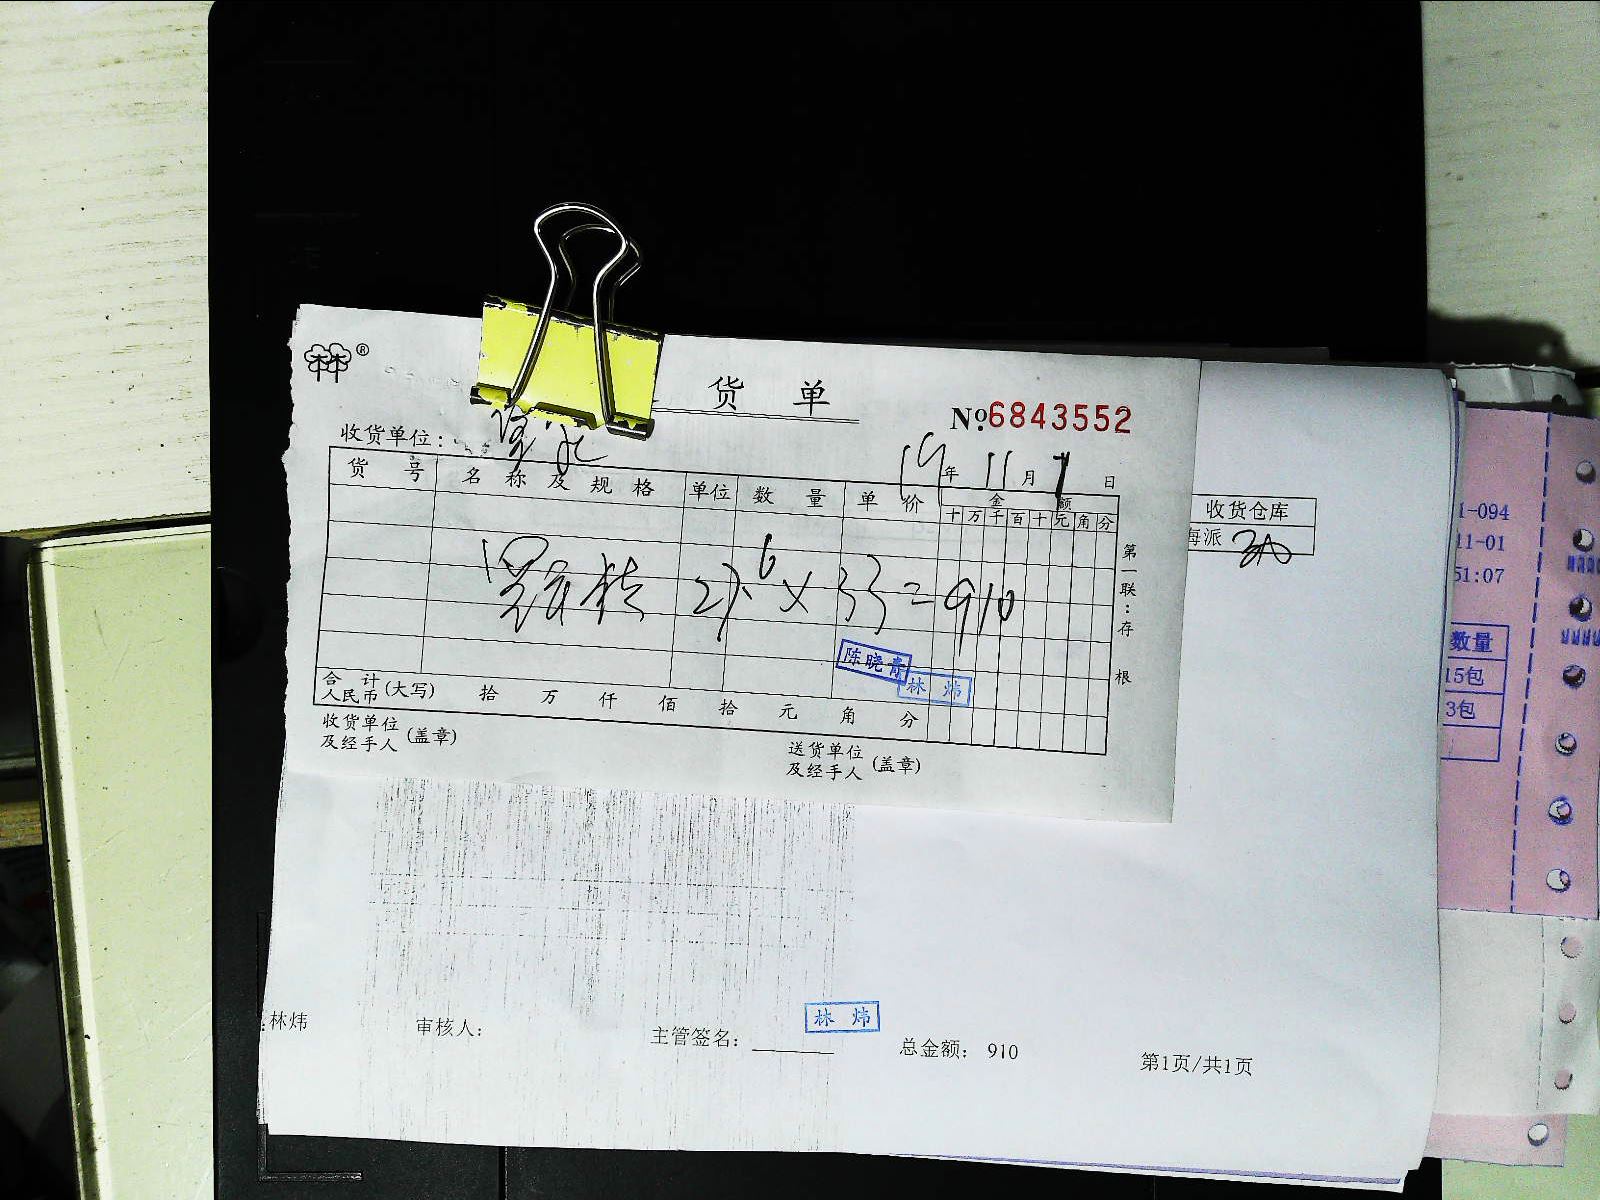 林林®
货 单
№6843552
收货单位:
19年11月1日
货 号 名称及规格 单位 数 量 单 价 金 额
十万千百十元角分
27.6×33=910
第一联:存根
陈晓青
林 炜
合 计
人民币(大写) 拾 万 仟 佰 拾 元 角 分
收货单位
及经手人 (盖章)
送货单位
及经手人 (盖章)
收货仓库
海派
1-094
11-01
51:07
数量
15包
3包
林炜
审核人:
主管签名:
林 炜
总金额: 910
第1页/共1页